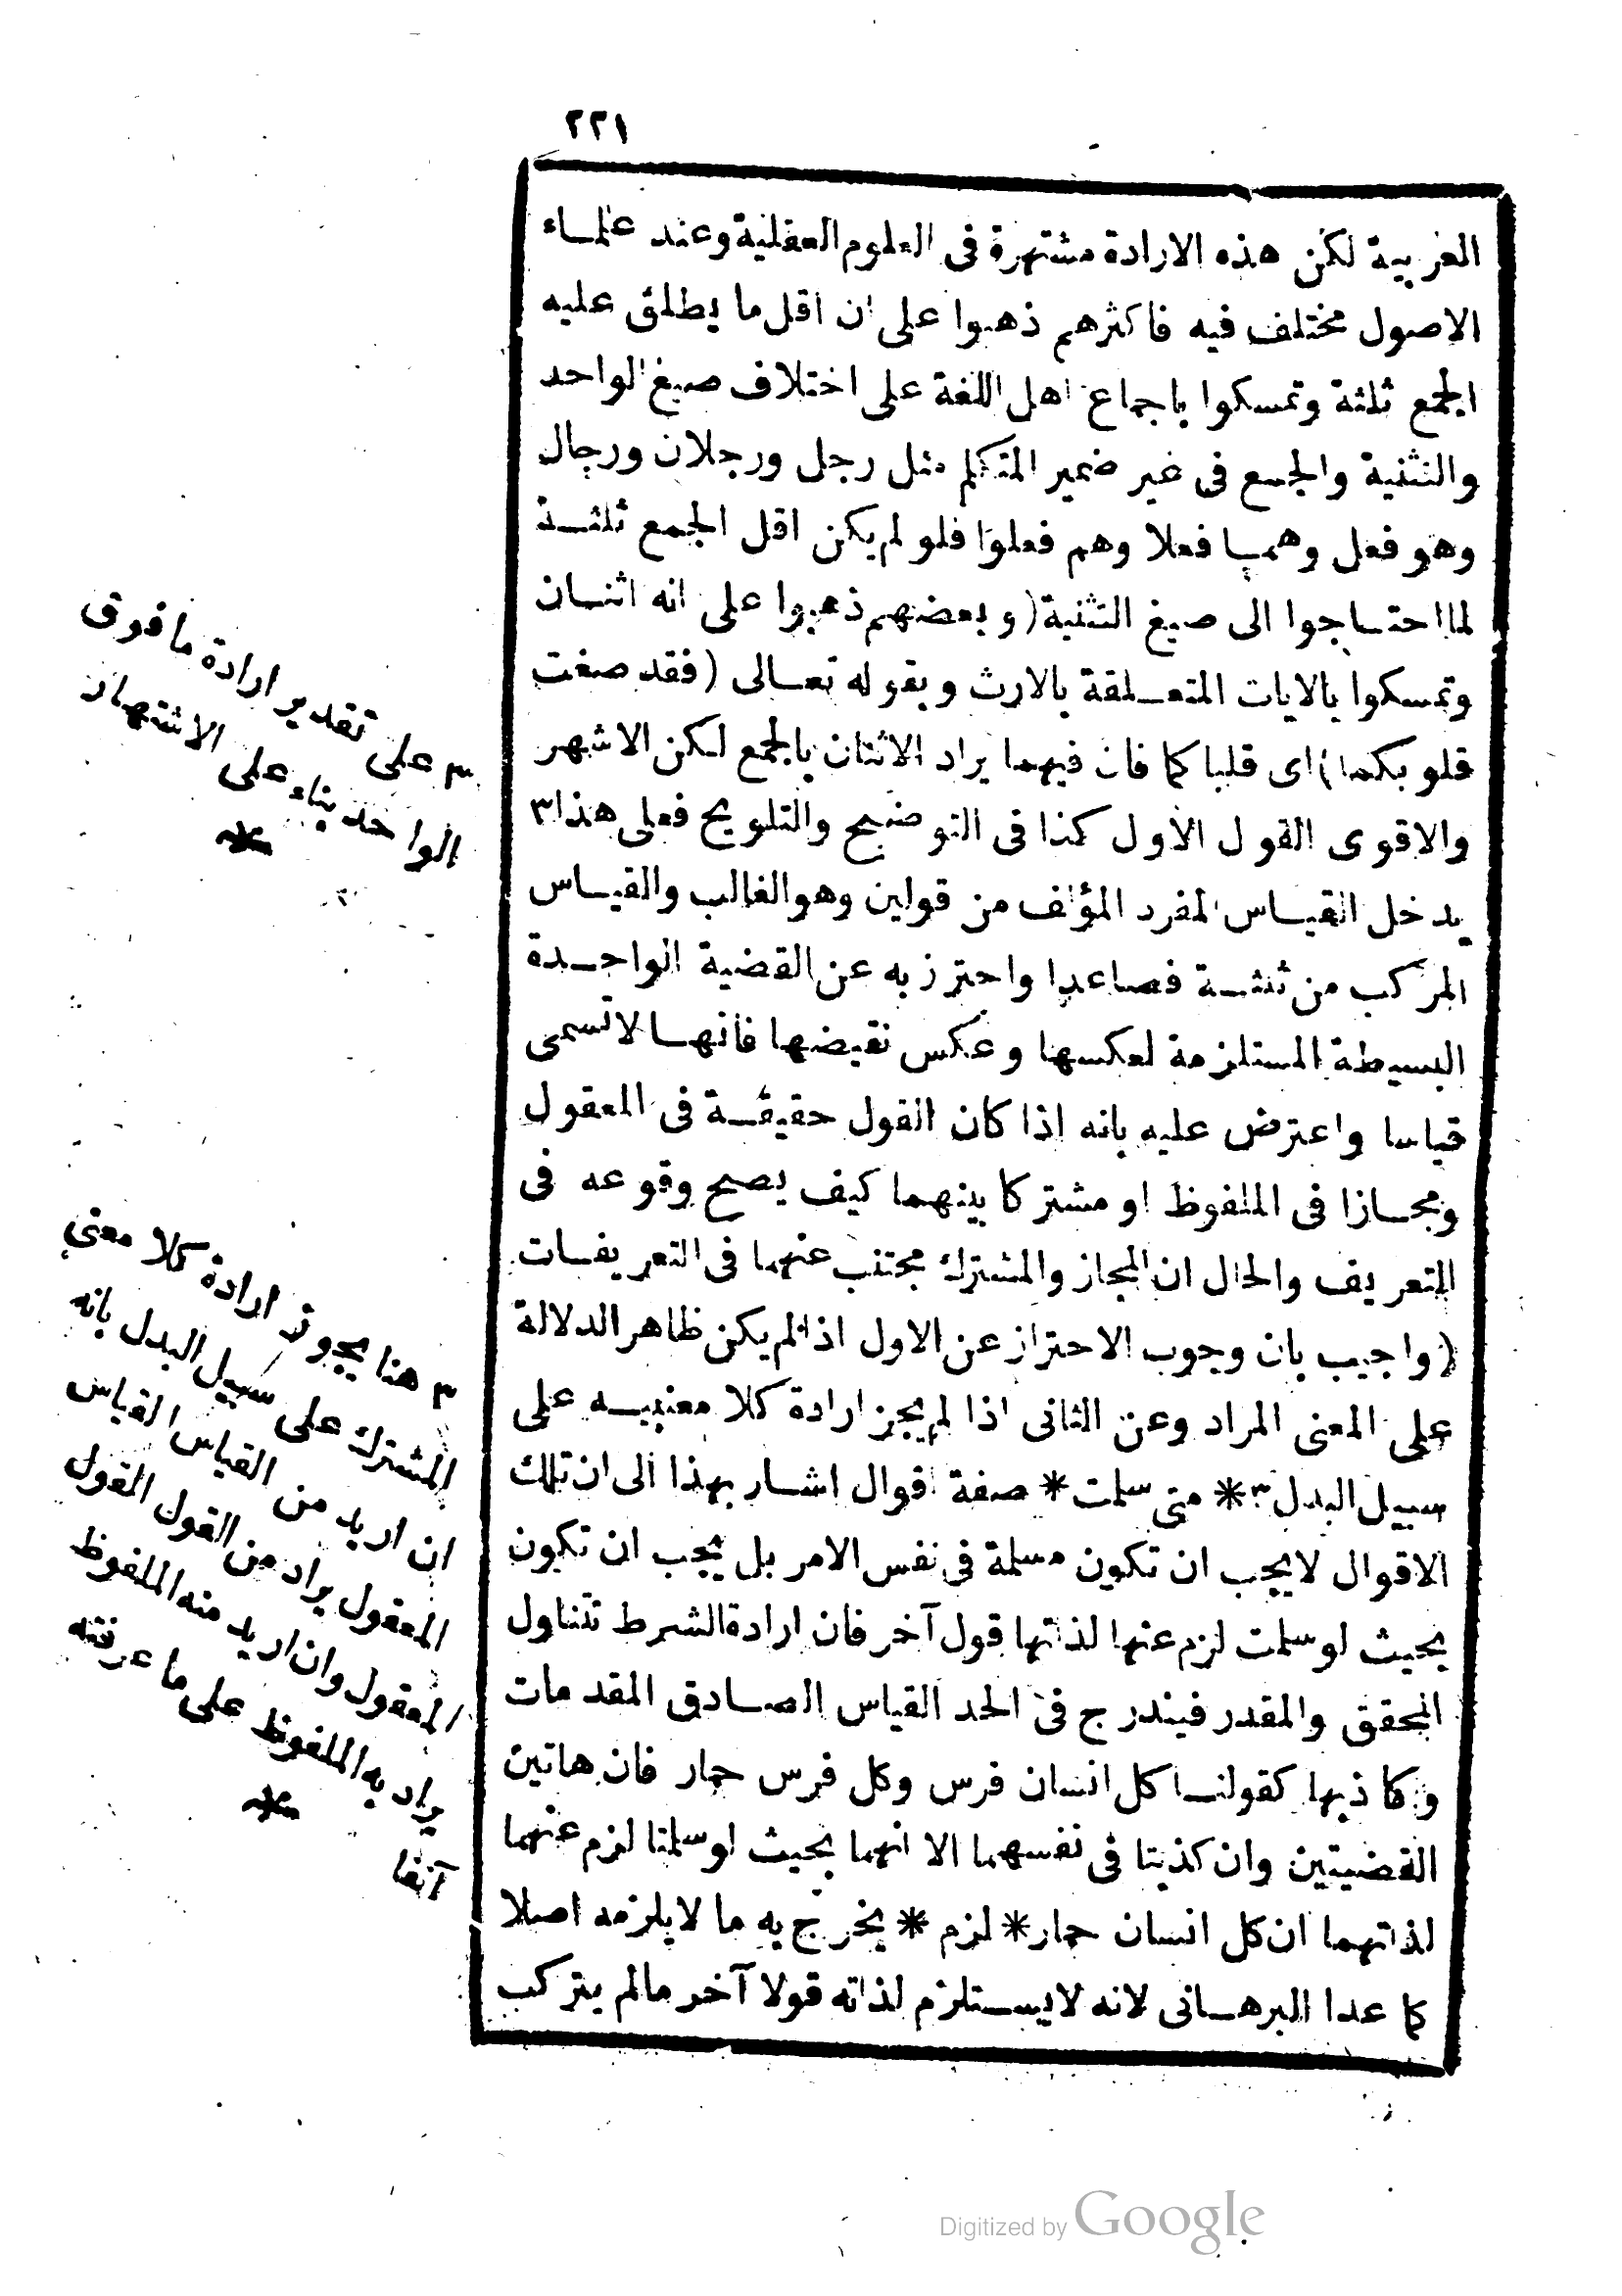 ٢٢١
العربية لكن هذه الارادة مشتهرة فى العلوم العقلية وعند علماء
الاصول مختلف فيه فاكثرهم ذهبوا على ان اقل ما يطلق عليه
الجمع ثلثة وتمسكوا باجماع اهل اللغة على اختلاف صيغ الواحد
والتثنية والجمع فى غير ضمير المتكلم مثل رجل ورجلان ورجال
وهو فعل وهما فعلا وهم فعلوا فلو لم يكن اقل الجمع ثلثة
لما احتاجوا الى صيغ التثنية (وبعضهم ذهبوا على انه اثنان
وتمسكوا بالايات المتعلقة بالارث وبقوله تعالى (فقد صغت
قلوبكما) اى قلبا كما فان فيهما يراد الاثنان بالجمع لكن الاشهر
والاقوى القول الاول كذا فى التوضيح والتلويح فعلى هذا ٣
يدخل القياس المفرد المؤلف من قولين وهو الغالب والقياس
المركب من ثلثة فصاعدا واحترز به عن القضية الواحدة
البسيطة المستلزمة لعكسها وعكس نقيضها فانها لا تسمى
قياسا واعترض عليه بانه اذا كان القول حقيقة فى المعقول
ومجازا فى الملفوظ او مشتركا بينهما كيف يصح وقوعه فى
التعريف والحال ان المجاز والمشترك مجتنب عنهما فى التعريفات
(واجيب بان وجوب الاحتراز عن الاول اذا لم يكن ظاهر الدلالة
على المعنى المراد وعن الثانى اذا لم يجز ارادة كلا معنييه على
سبيل البدل ٣ * متى سلمت * صفة اقوال اشار بهذا الى ان تلك
الاقوال لا يجب ان تكون مسلمة فى نفس الامر بل يجب ان تكون
بحيث لو سلمت لزم عنها لذاتها قول آخر فان ارادة الشرط تتناول
المحقق والمقدر فيندرج فى الحد القياس الصادق المقدمات
وكاذبها كقولنا كل انسان فرس وكل فرس حمار فان هاتين
القضيتين وان كذبتا فى نفسهما الا انهما بحيث لو سلمتا لزم عنهما
لذاتهما ان كل انسان حمار * لزم * يخرج به ما لا يلزمه اصلا
كما عدا البرهانى لانه لا يستلزم لذاته قولا آخر مالم يتركب
٣ على تقدير ارادة ما فوق
الواحد بناء على الاشتهار
٣ هنا يجوز ارادة كلا معنى
المشترك على سبيل البدل بانه
ان اريد من القياس القياس
المعقول يراد من القول القول
المعقول وان اريد منه الملفوظ
يراد به الملفوظ على ما عرفته
آنفا
Digitized by Google